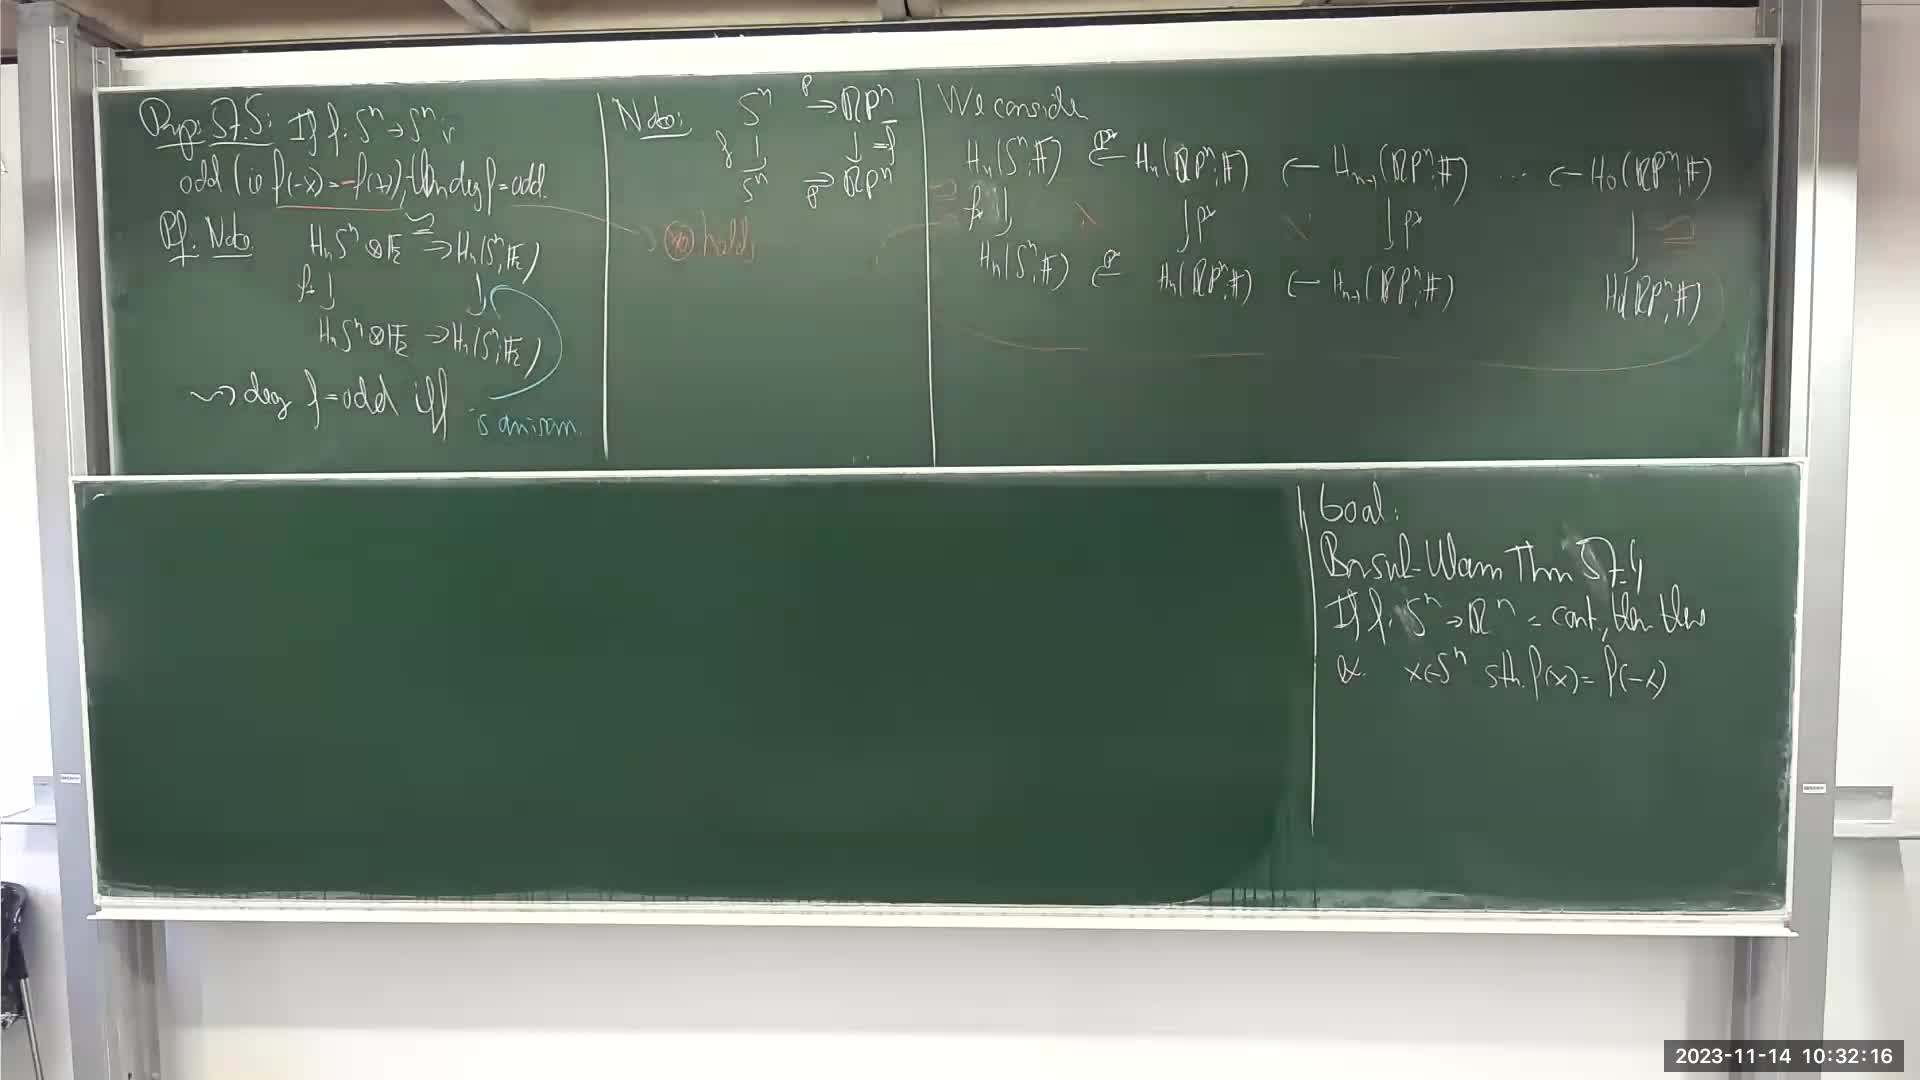 Prop. 57.5: If f: Sⁿ → Sⁿ is
odd (ie f(-x) = -f(x)), then deg f = odd.
Pf. Note
HₙSⁿ ⊗ 𝔽₂ ≅→ Hₙ(Sⁿ; 𝔽₂)
f* ↓ ↓
HₙSⁿ ⊗ 𝔽₂ → Hₙ(Sⁿ; 𝔽₂)
⇝ deg f = odd iff is an isom.
Note: Sⁿ p→ ℝPⁿ
f ↓ ↓ =f
Sⁿ p→ ℝPⁿ
holds
We conside
Hₙ(Sⁿ; 𝔽) ← Hₙ(ℝPⁿ; 𝔽) ← Hₙ₋₁(ℝPⁿ; 𝔽) ... ← H₀(ℝPⁿ; 𝔽)
f* ↓ ↓ f* ↓ f* ↓ ≅
Hₙ(Sⁿ; 𝔽) ← Hₙ(ℝPⁿ; 𝔽) ← Hₙ₋₁(ℝPⁿ; 𝔽) H₀(ℝPⁿ; 𝔽)
Goal:
Borsuk-Ulam Thm 57.4
If f: Sⁿ → ℝⁿ = cont., then there
ex. x ∈ Sⁿ sth. f(x) = f(-x)
2023-11-14 10:32:16